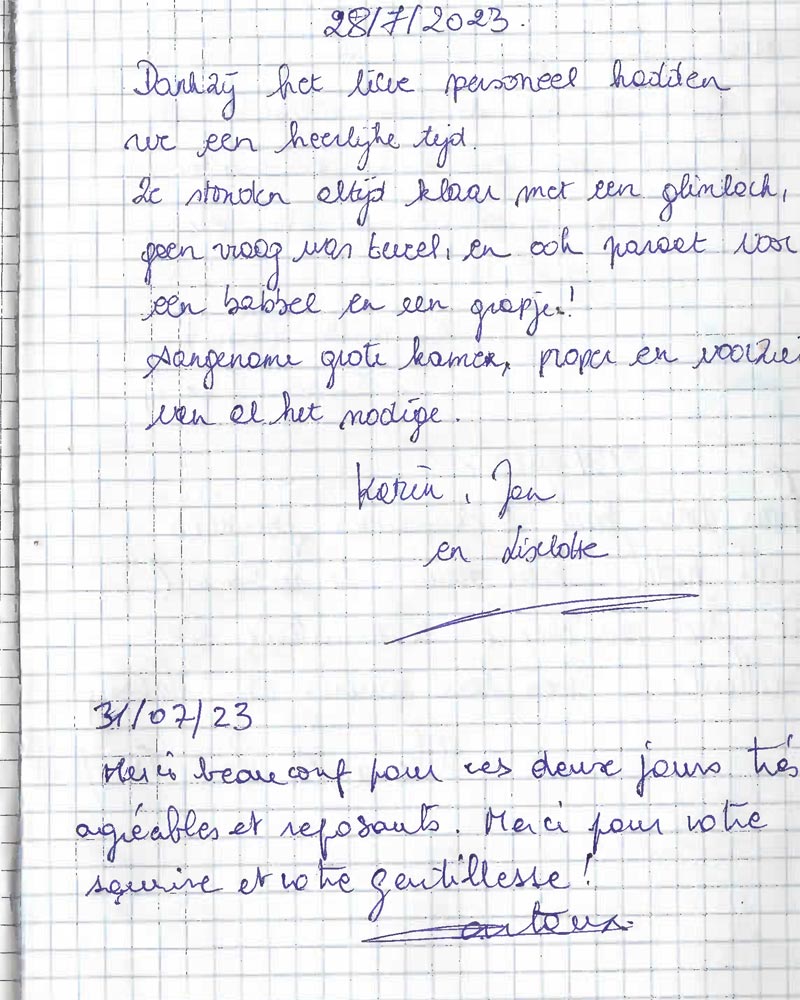 28/7/2023.
Dankzij het lieve personeel hadden
we een heerlijke tijd.
Ze stonden altijd klaar met een glimlach,
geen vraag was teveel, en ook paraat voor
een babbel en een grapje!
Aangename grote kamer, proper en voorzie
van al het nodige.
Karin, Jan
en Liselotte
31/07/23
Merci beaucoup pour ces deux jours très
agréables et reposants. Merci pour votre
sourire et votre gentillesse!